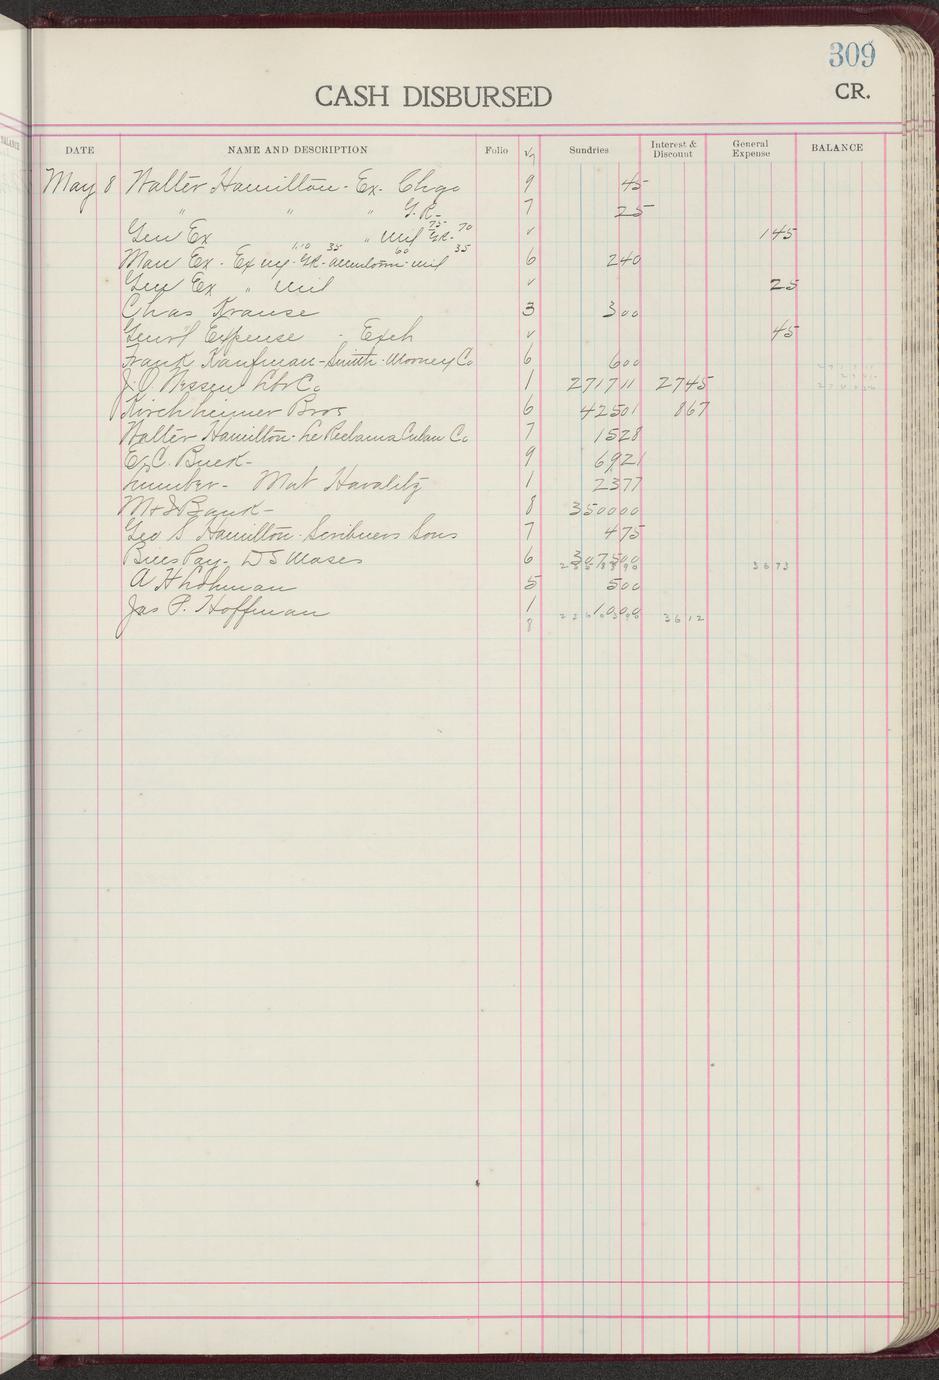 309
CASH DISBURSED
CR.
DATE NAME AND DESCRIPTION Folio Sundries Interest & Discount General Expense BALANCE
May 8 Walter Hamilton - Ex. Chgo 9 45
" " " G.R. 7 25
Gen Ex " Mil 75 G.R. 70 v 145
Man Ex - Ex 1.10 G.R. 35 60 mil 35 6 240
Gen Ex " Mil v 25
Chas Krause 3 300
Genrl Expense - Exch v 45
Frank Kaufman - Smith Mooney Co 6 600
J.O. Nessen Lbr Co 1 271711 2745
Kirchheimer Bros 6 42501 867
Walter Hamilton - Cuban Co 7 1528
E.C. Buck - 9 6921
Lumber - Mat 1 2377
M & S Bank - 8 350000
Geo S Hamilton - Scribners Sons 7 475
Bills Pay - D S Moses 6 307500
3673
A H Lohman 5 500
Jas P. Hoffman 1 1000
8 3612